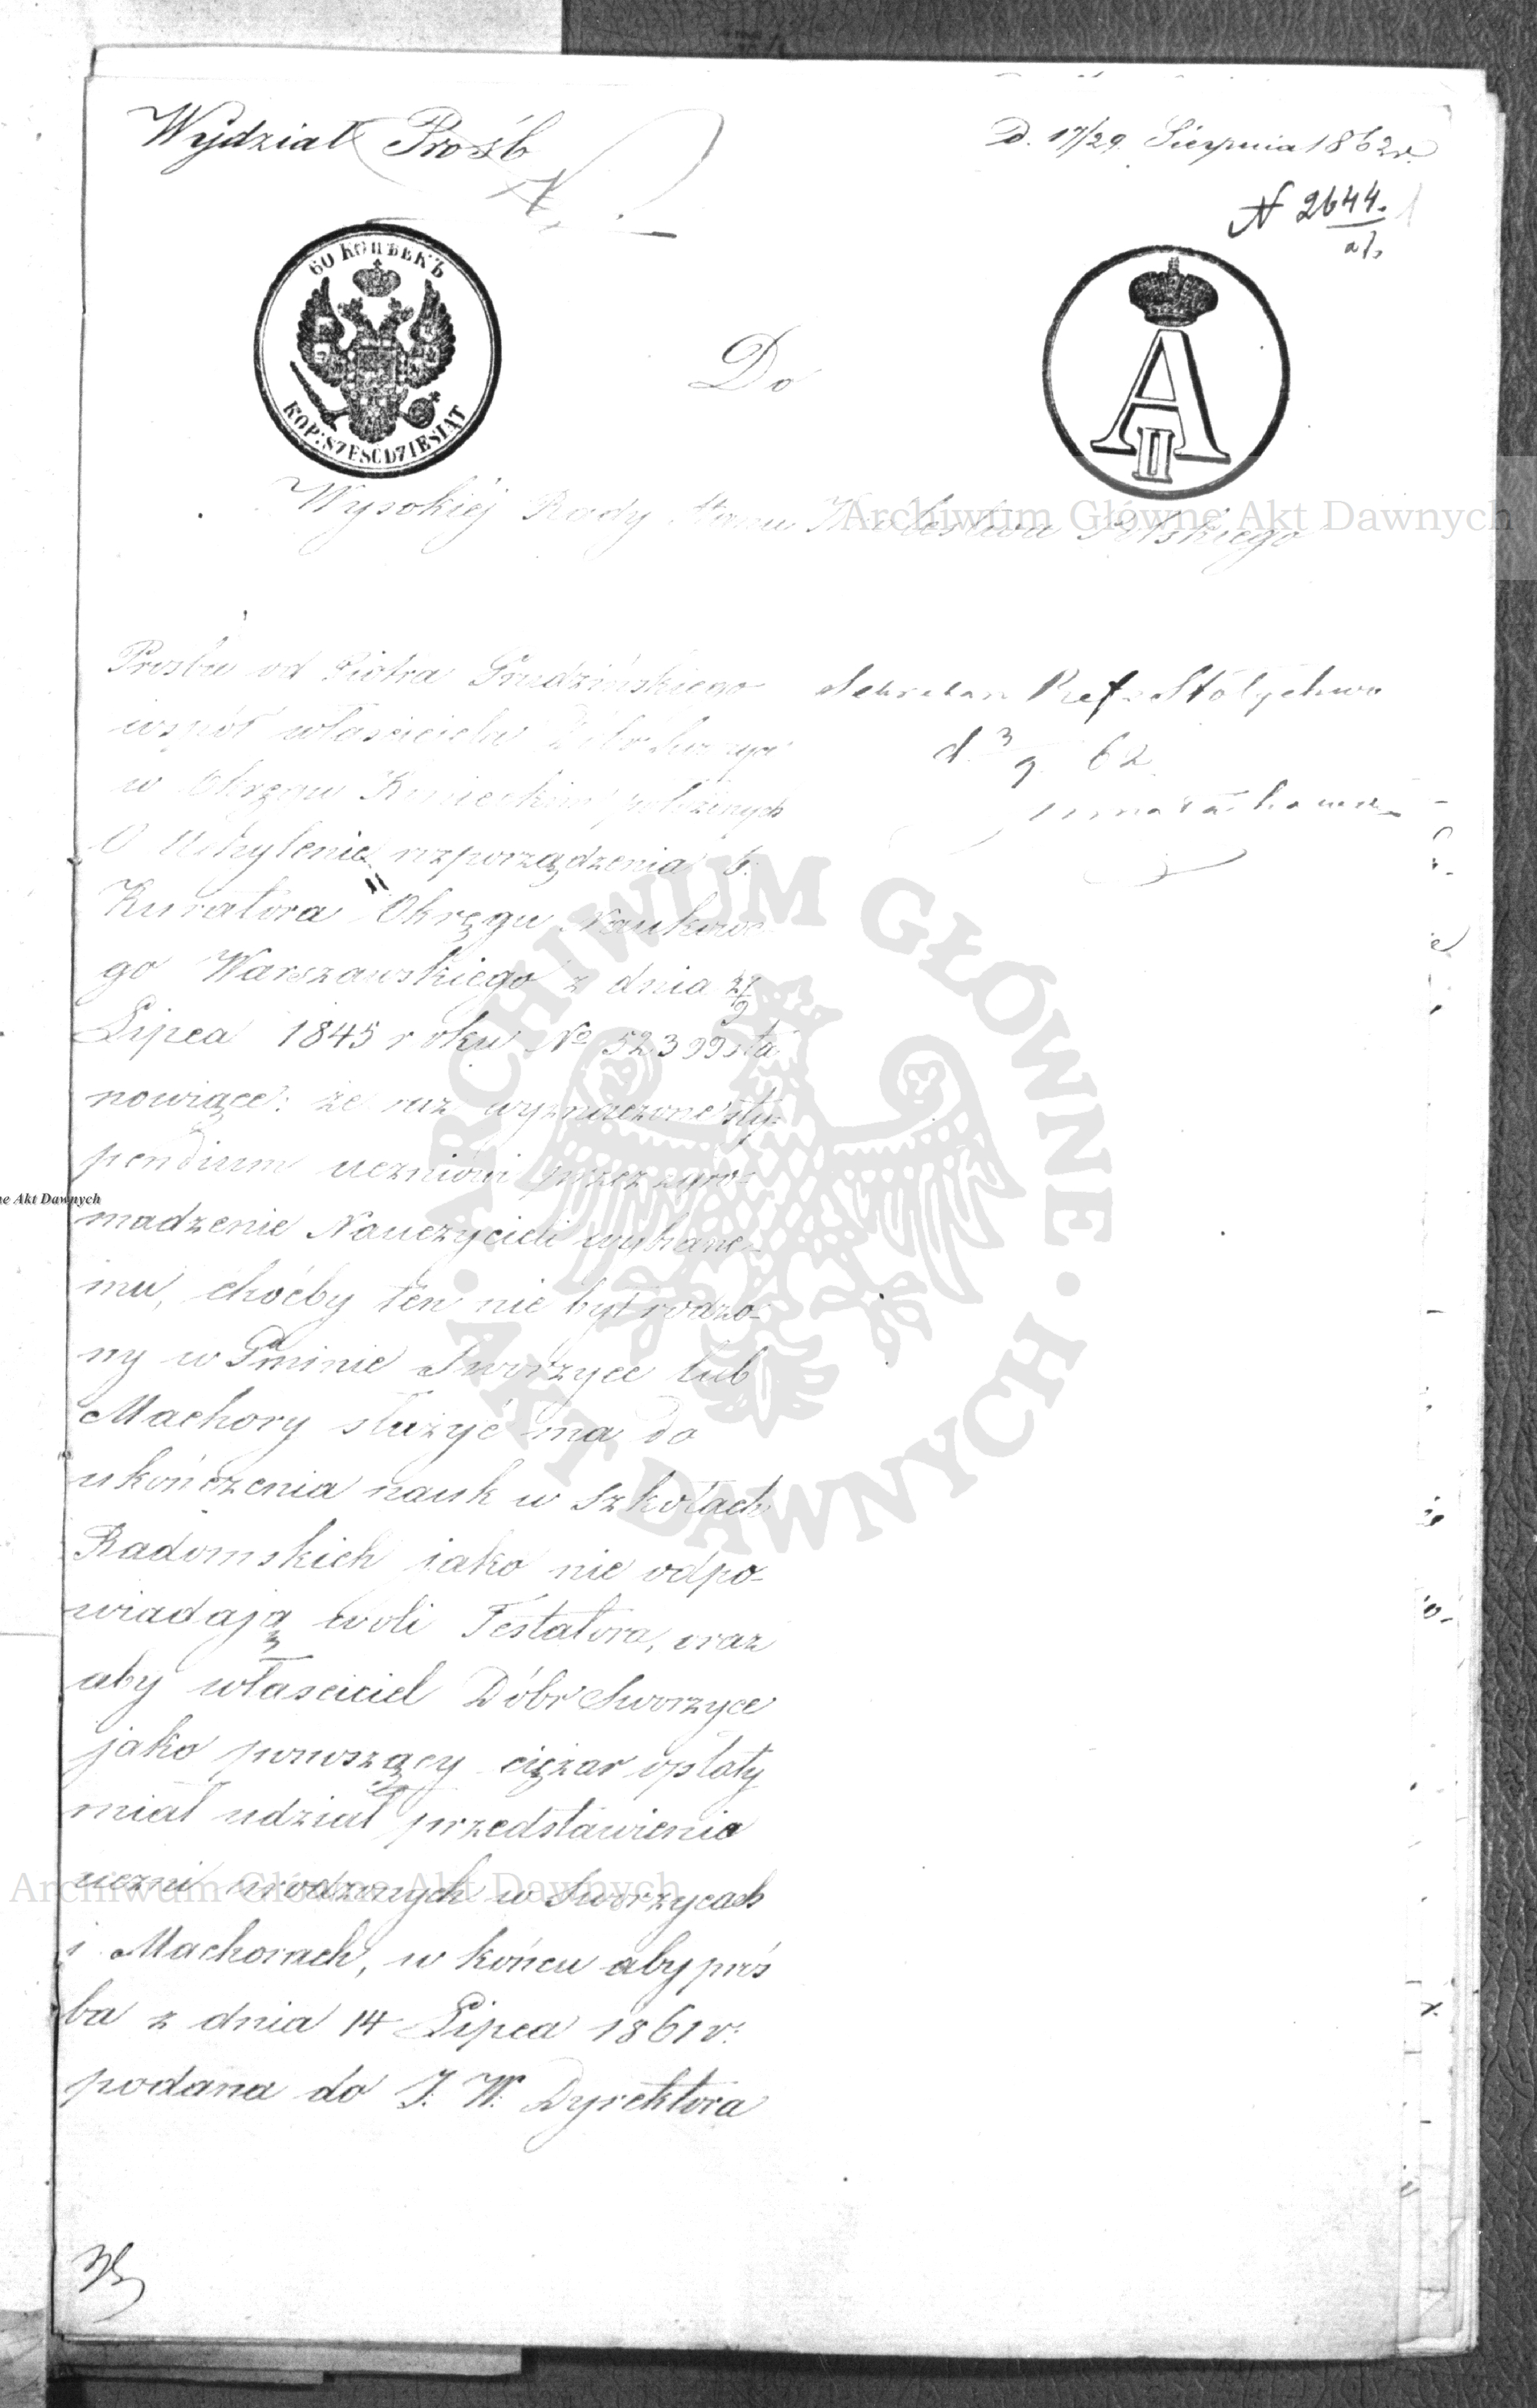 Wydział Próśb
D. 17/29 Sierpnia 1862 r.
N 2644.
60 КОПѢЕКЪ
KOP: SZESCDZIESIĄT
A II
Do
Wysokiéj Rady Stanu Królestwa Polskiego
Archiwum Główne Akt Dawnych
Prośba od Piotra Grudzińskiego
współ właściciela Dóbr Sworzyc
w Okręgu Koneckim położonych
O Uchylenie rozporządzenia b.
Kuratora Okręgu Naukowe-
go Warszawskiego z dnia
Lipca 1845 roku No 52399 sta
nowiące: że raz wyznaczone sty-
pendium uczniowi przez zgro-
madzenie Nauczycieli wybrane-
mu, choćby ten nie był rodzo-
ny w Gminie Sworzyce lub
Machory służyć ma do
ukończenia nauk w Szkołach
Radomskich jako nie odpo-
wiadają woli Testatora, oraz
aby właściciel Dóbr Sworzyce
jako ponoszący ciężar opłaty
miał udział przedstawienia
uczni urodzonych w Sworzycach
i Machorach, w końcu aby proś
ba z dnia 14 Lipca 1861 r:
podana do J. W. Dyrektora
Sekretarz
d. 3/9 62
ARCHIWUM GŁÓWNE AKT DAWNYCH
ne Akt Dawnych
Archiwum Główne Akt Dawnych